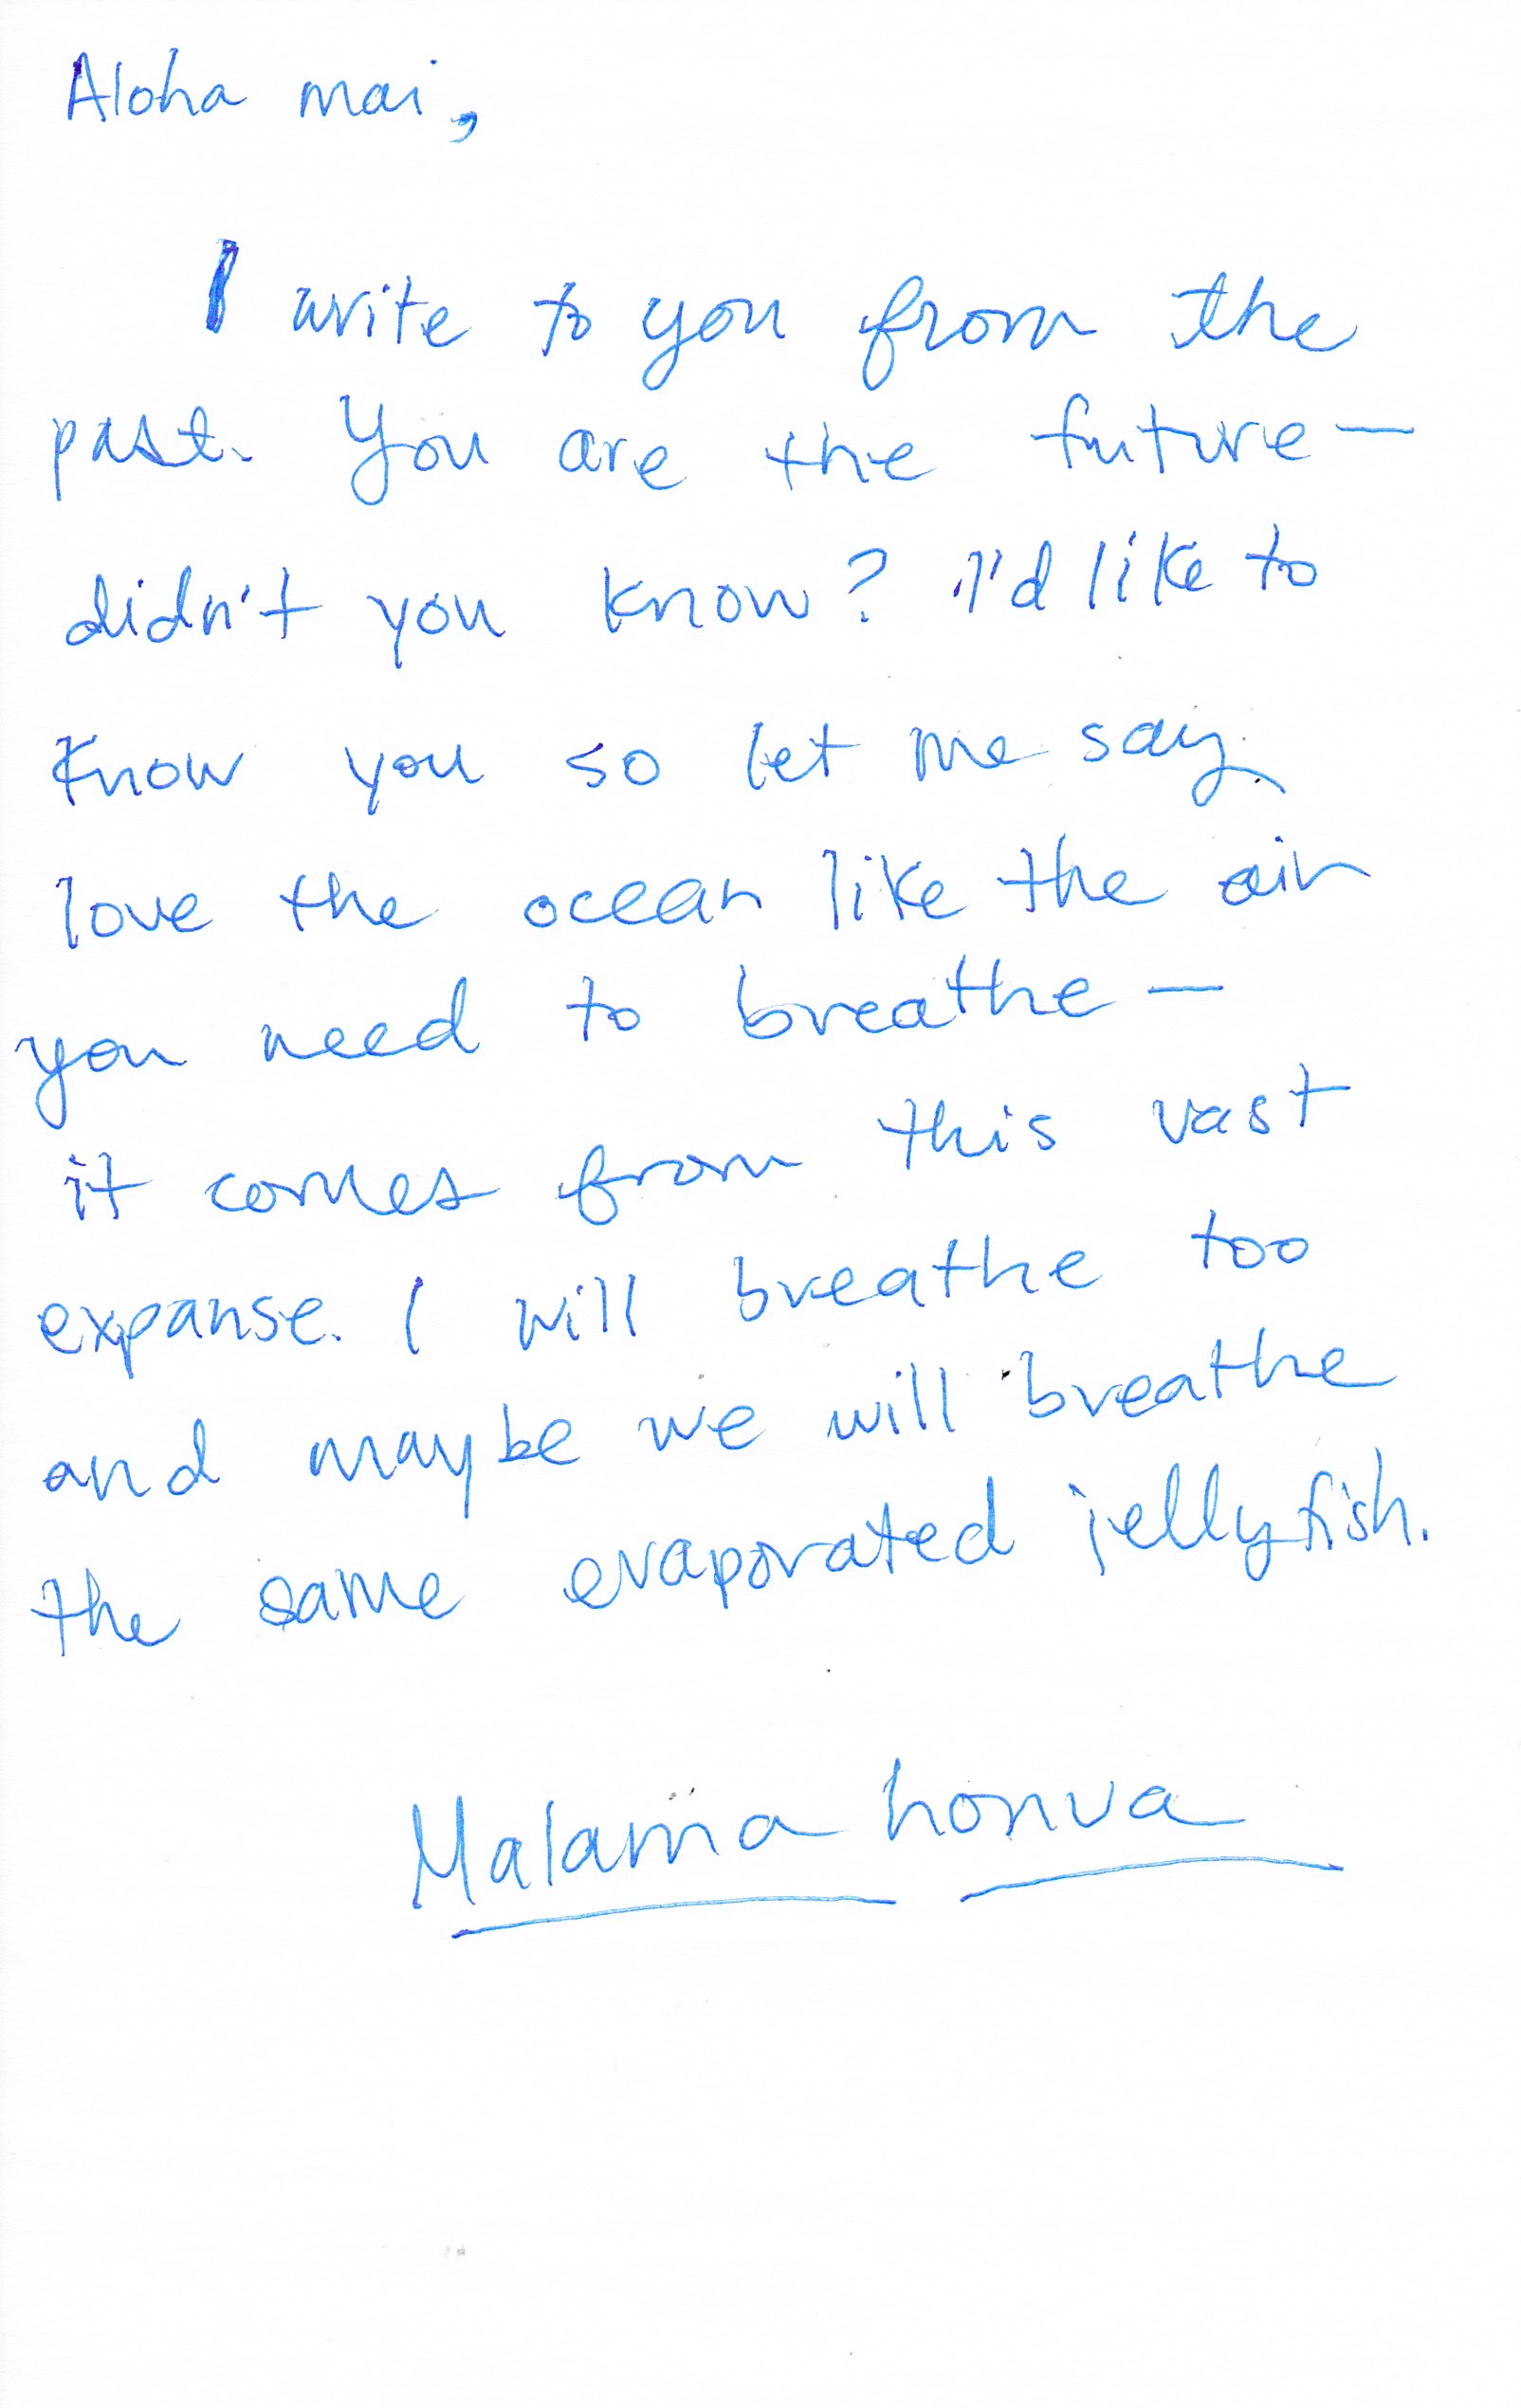 Aloha mai,
I write to you from the
past. You are the future—
didn't you know? I'd like to
know you so let me say
love the ocean like the air
you need to breathe—
it comes from this vast
expanse. I will breathe too
and maybe we will breathe
the same evaporated jellyfish.
Malama honua